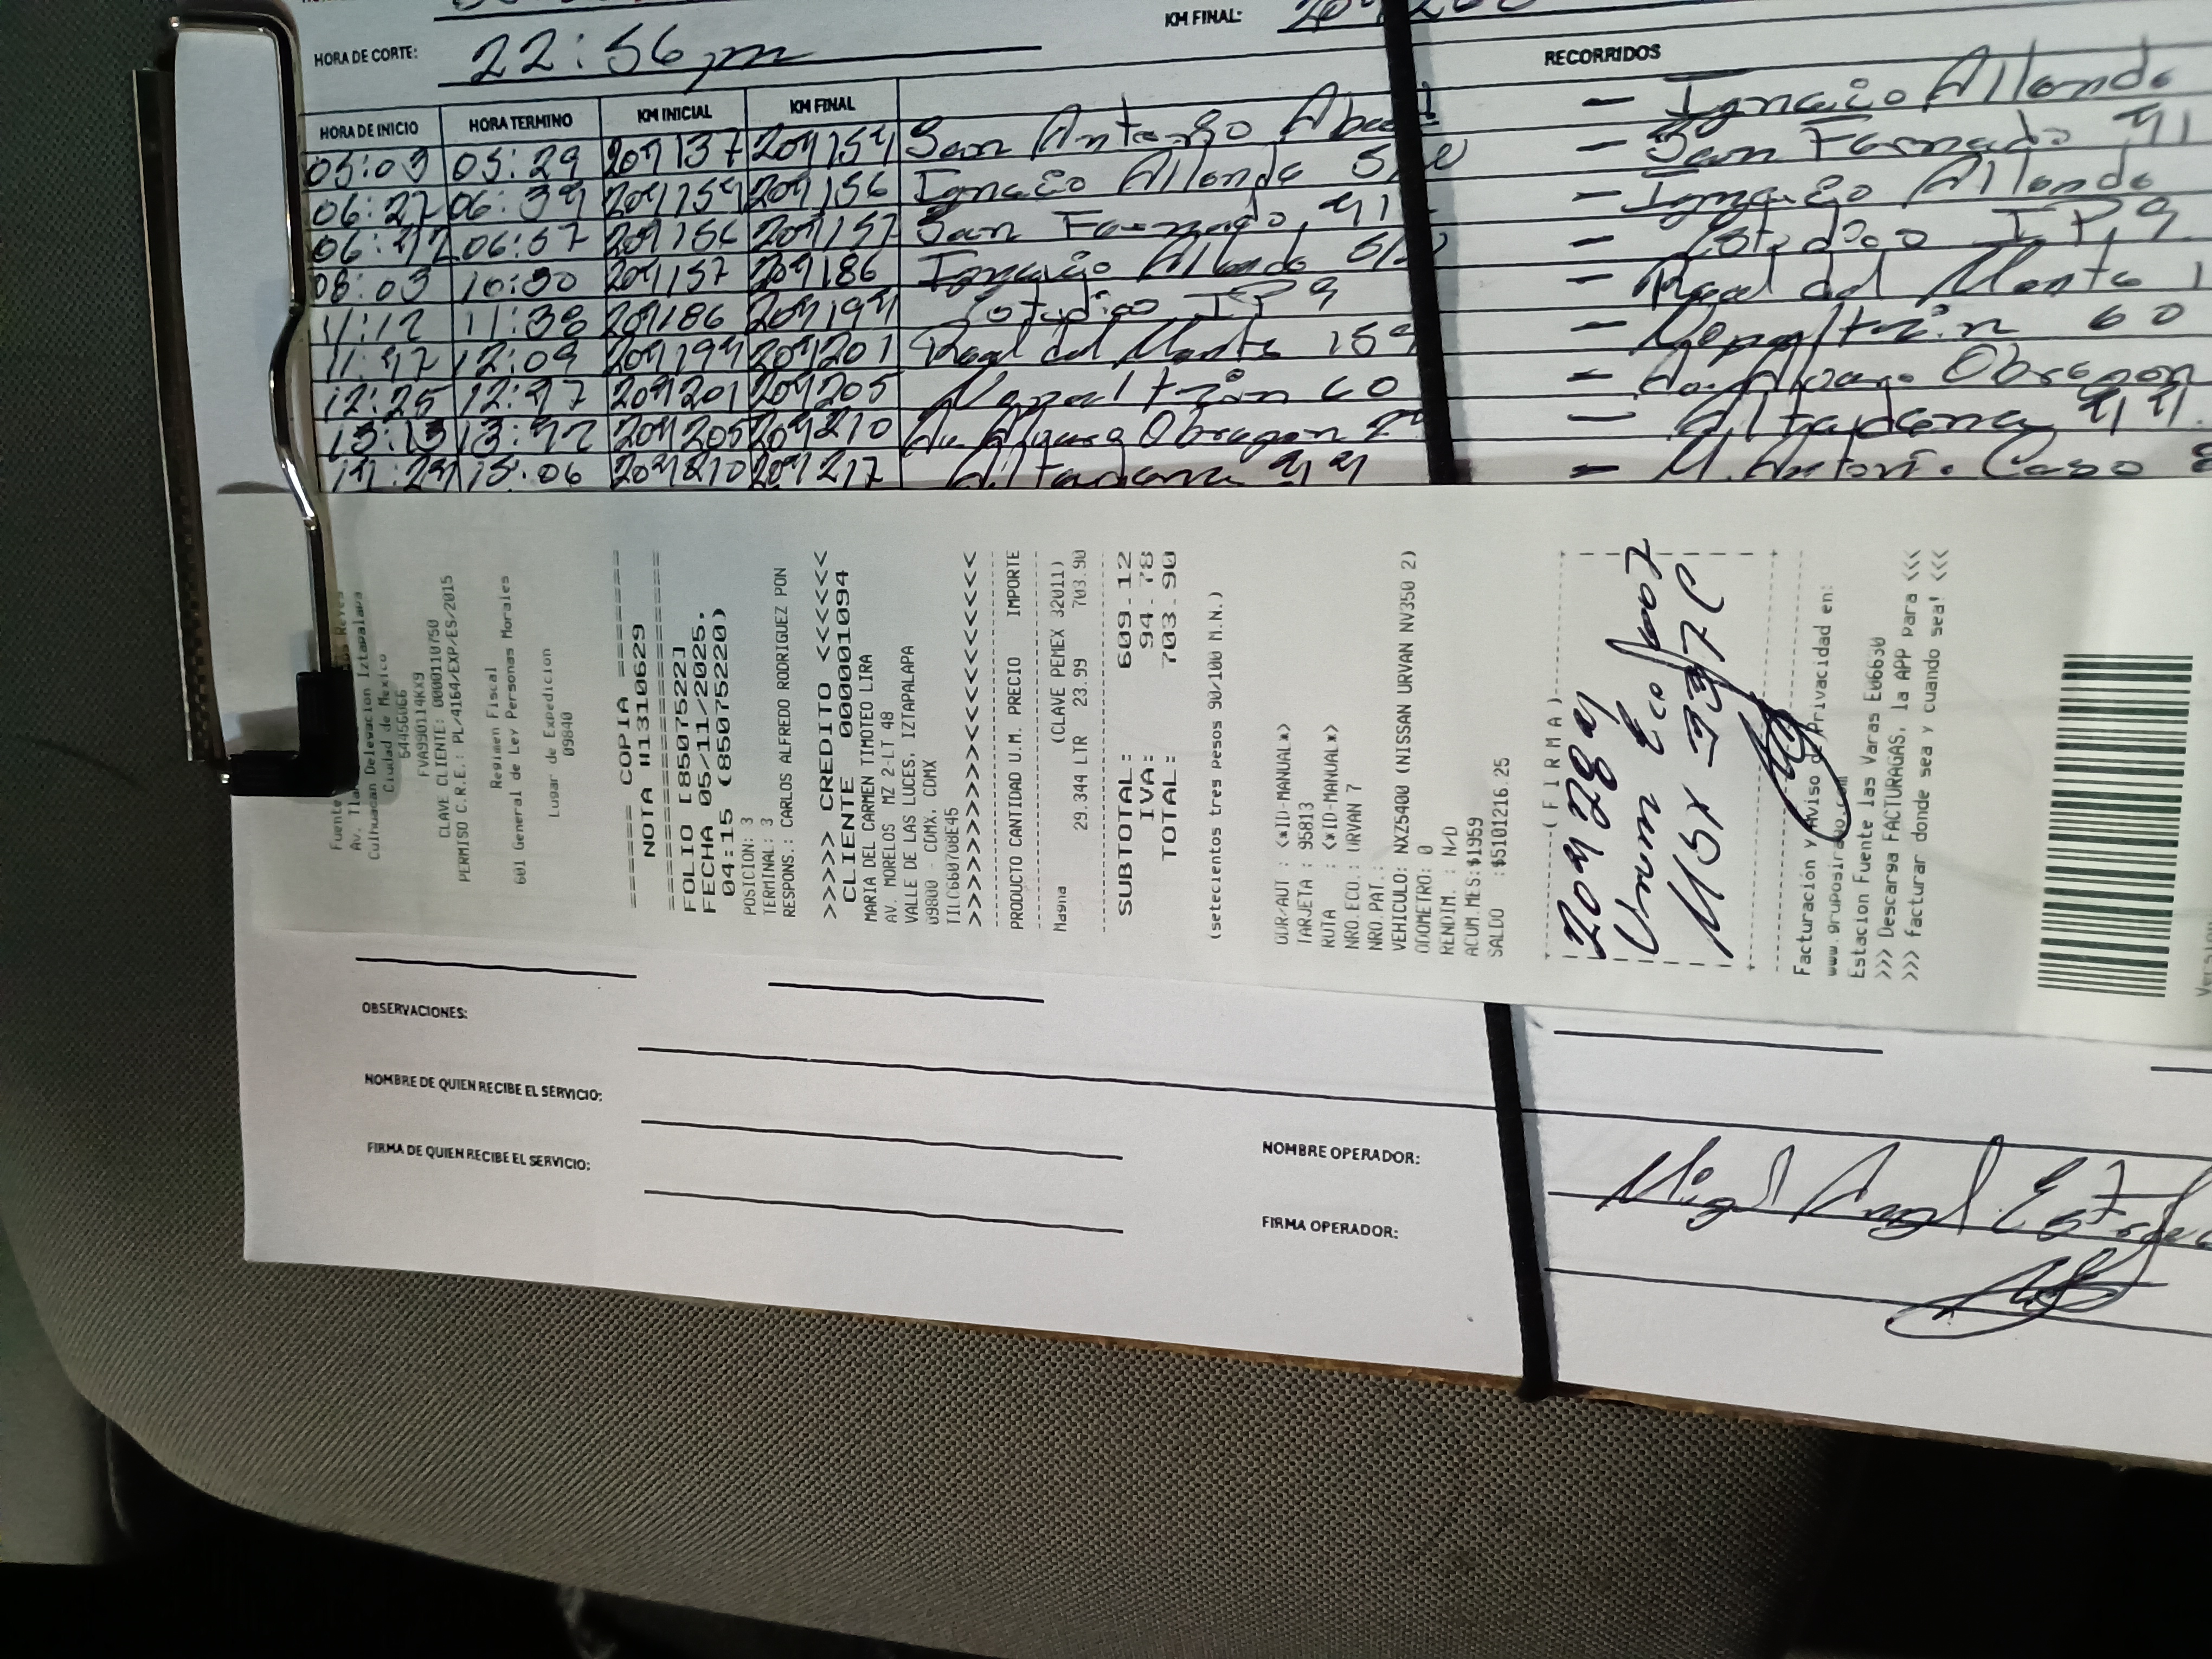 KM FINAL:
HORA DE CORTE: 22:56 pm
RECORRIDOS
HORA DE INICIO HORA TERMINO KM INICIAL KM FINAL
05:03 05:29 204137 204154 San Antonio Abad - Ignacio Allende
06:27 06:34 204154 204156 Ignacio Allende S/N - San Fernado 41
06:42 06:57 204156 204157 San Fernado 41 - Ignacio Allende
08:03 10:30 204157 204186 Ignacio Allende S/N - Estudio IP, 9
11:12 11:38 204186 204194 Estudio IP 9 - Real del Monte 1
11:47 12:09 204194 204201 Real del Monte 159 - Nepaltzin 60
12:25 12:47 204201 204205 Nepaltzin 60 - Av. Alvaro Obregon
13:13 13:42 204205 204210 Av. Alvaro Obregon - Altadena 44
14:24 15:06 204210 204217 Altadena 44 - M. Antonio Caso
Fuente
Av. Tla
Culhuacan Delegacion Iztapalapa
Ciudad de Mexico
54456066
FVA990114KX9
CLAVE CLIENTE: 0000110750
PERMISO C.R.E.: PL/4164/EXP/ES/2015
Regimen Fiscal
601 General de Ley Personas Morales
Lugar de Expedicion
09840
====== COPIA ======
NOTA #13110629
===================
FOLIO [85075222]
FECHA 05/11/2025,
04:15 (85075220)
POSICION: 3
TERMINAL: 3
RESPONS.: CARLOS ALFREDO RODRIGUEZ PON
>>>>> CREDITO <<<<<<
CLIENTE 0000001094
MARIA DEL CARMEN TIMOTEO LIRA
AV. MORELOS MZ 2-LT 48
VALLE DE LAS LUCES, IZTAPALAPA
09800 - CDMX, CDMX
TILC660708E45
>>>>>>>>>><<<<<<<<<<
PRODUCTO CANTIDAD U.M. PRECIO IMPORTE
Magna (CLAVE PEMEX 32011)
29.344 LTR 23.99 703.90
SUBTOTAL: 609.12
IVA: 94.78
TOTAL: 703.90
(setecientos tres pesos 90/100 M.N.)
ODR/AUT : <*ID-MANUAL*>
TARJETA : 95813
RUTA : <*ID-MANUAL*>
NRO.ECO.: URVAN 7
NRO.PAT.:
VEHICULO: NXZ5400 (NISSAN URVAN NV350 2)
ODOMETRO: 0
RENDIM. : N/D
ACUM.MES:$1959
SALDO :$5101216.25
(FIRMA)
204284
Urvan Eco
Facturación y Aviso de Privacidad en:
www.gruposirado.com
Estacion Fuente las Varas E06630
>>> Descarga FACTURAGAS, la APP para <<<
>>> facturar donde sea y cuando sea! <<<
OBSERVACIONES:
NOMBRE DE QUIEN RECIBE EL SERVICIO:
FIRMA DE QUIEN RECIBE EL SERVICIO:
NOMBRE OPERADOR: Miguel Angel
FIRMA OPERADOR: